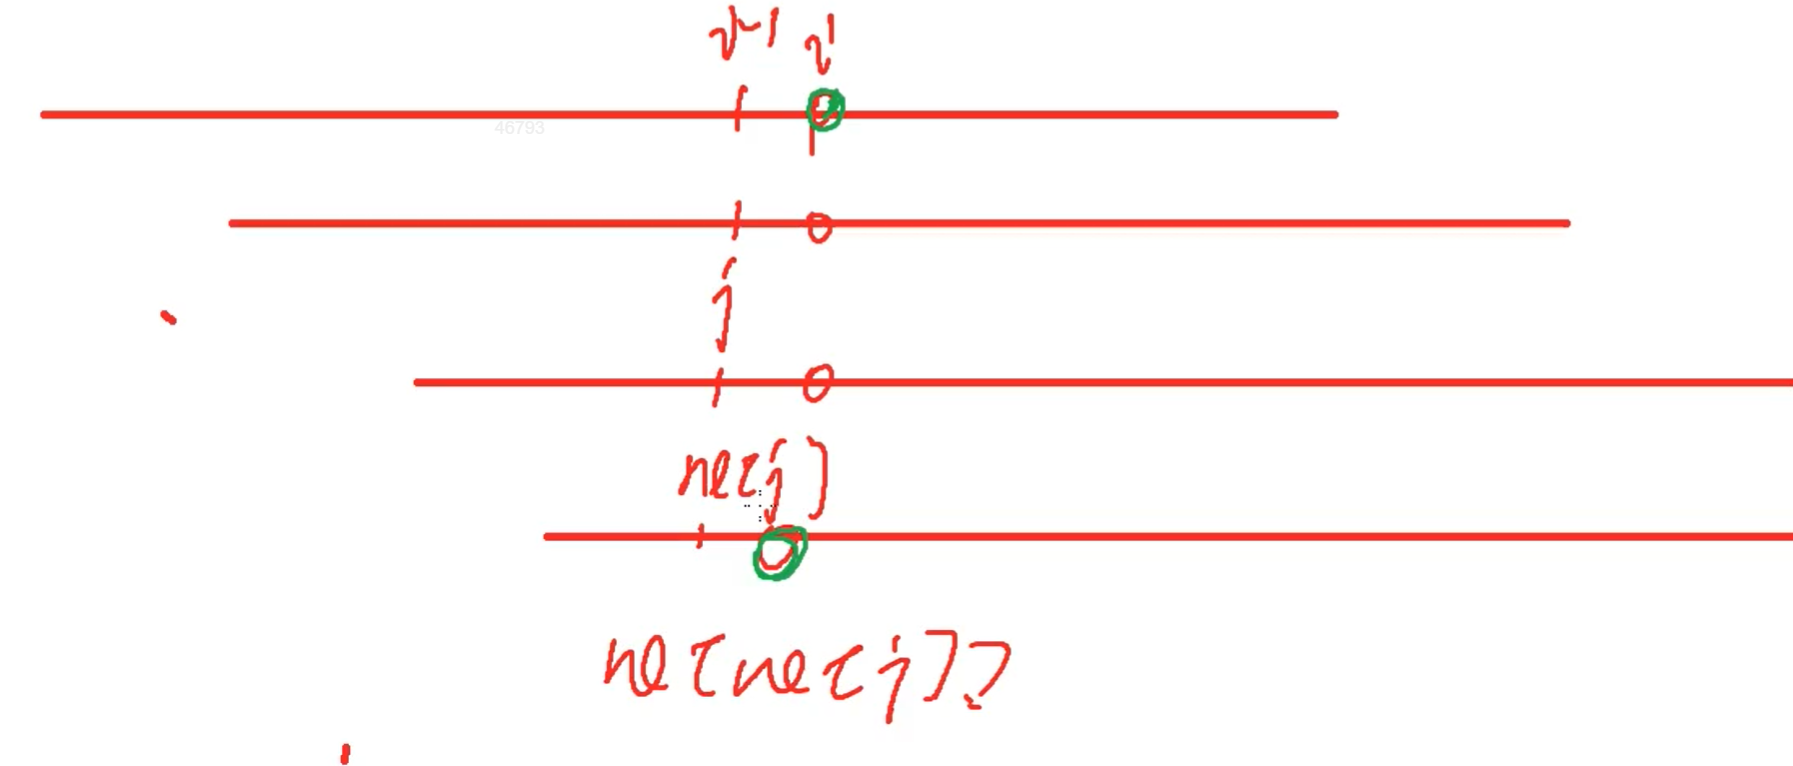 i-1 i
46793
j
ne[j]
ne[ne[j]]